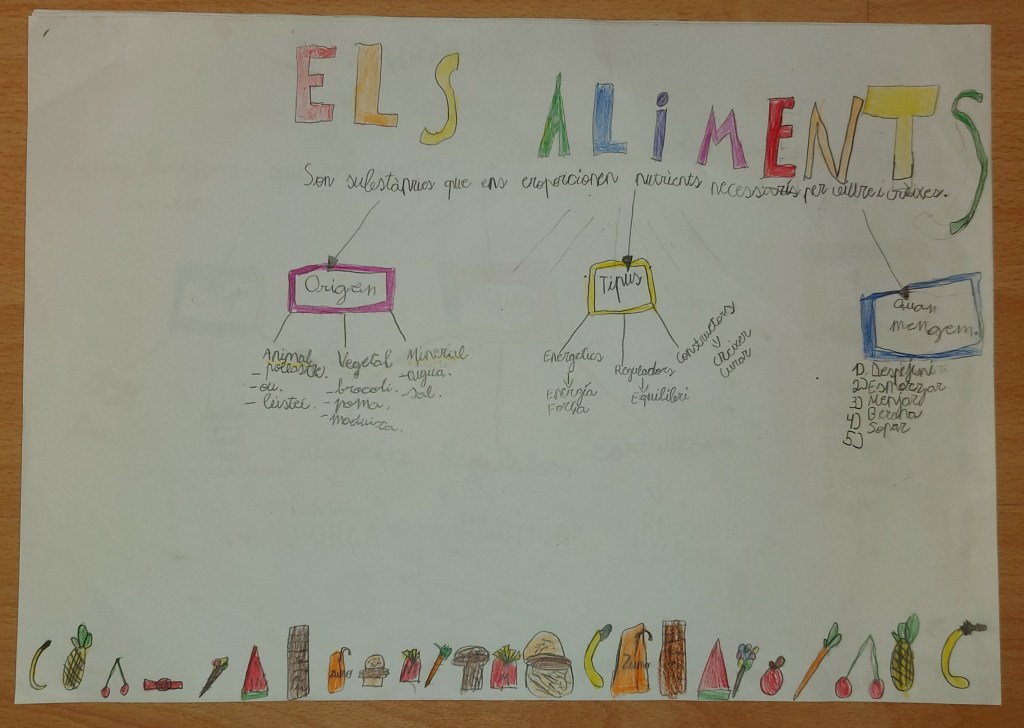 ELS ALIMENTS
Son substàncies que ens proporcionen nutrients necessaris per viure i créixes.
Origen
Animal
- pollastre.
- ou.
Vegetal
- brocoli.
- poma.
- maduixa.
Mineral
- aigua.
- sal.
Tipus
Energetics
Energía
Força
Reguladors
Equilibri
Constructors
Créixer
Curar
Quan
mengem.
1)
2) Esmorzar
3) Menjar
4) Berena
5) Sopar
Zumo
Zumo